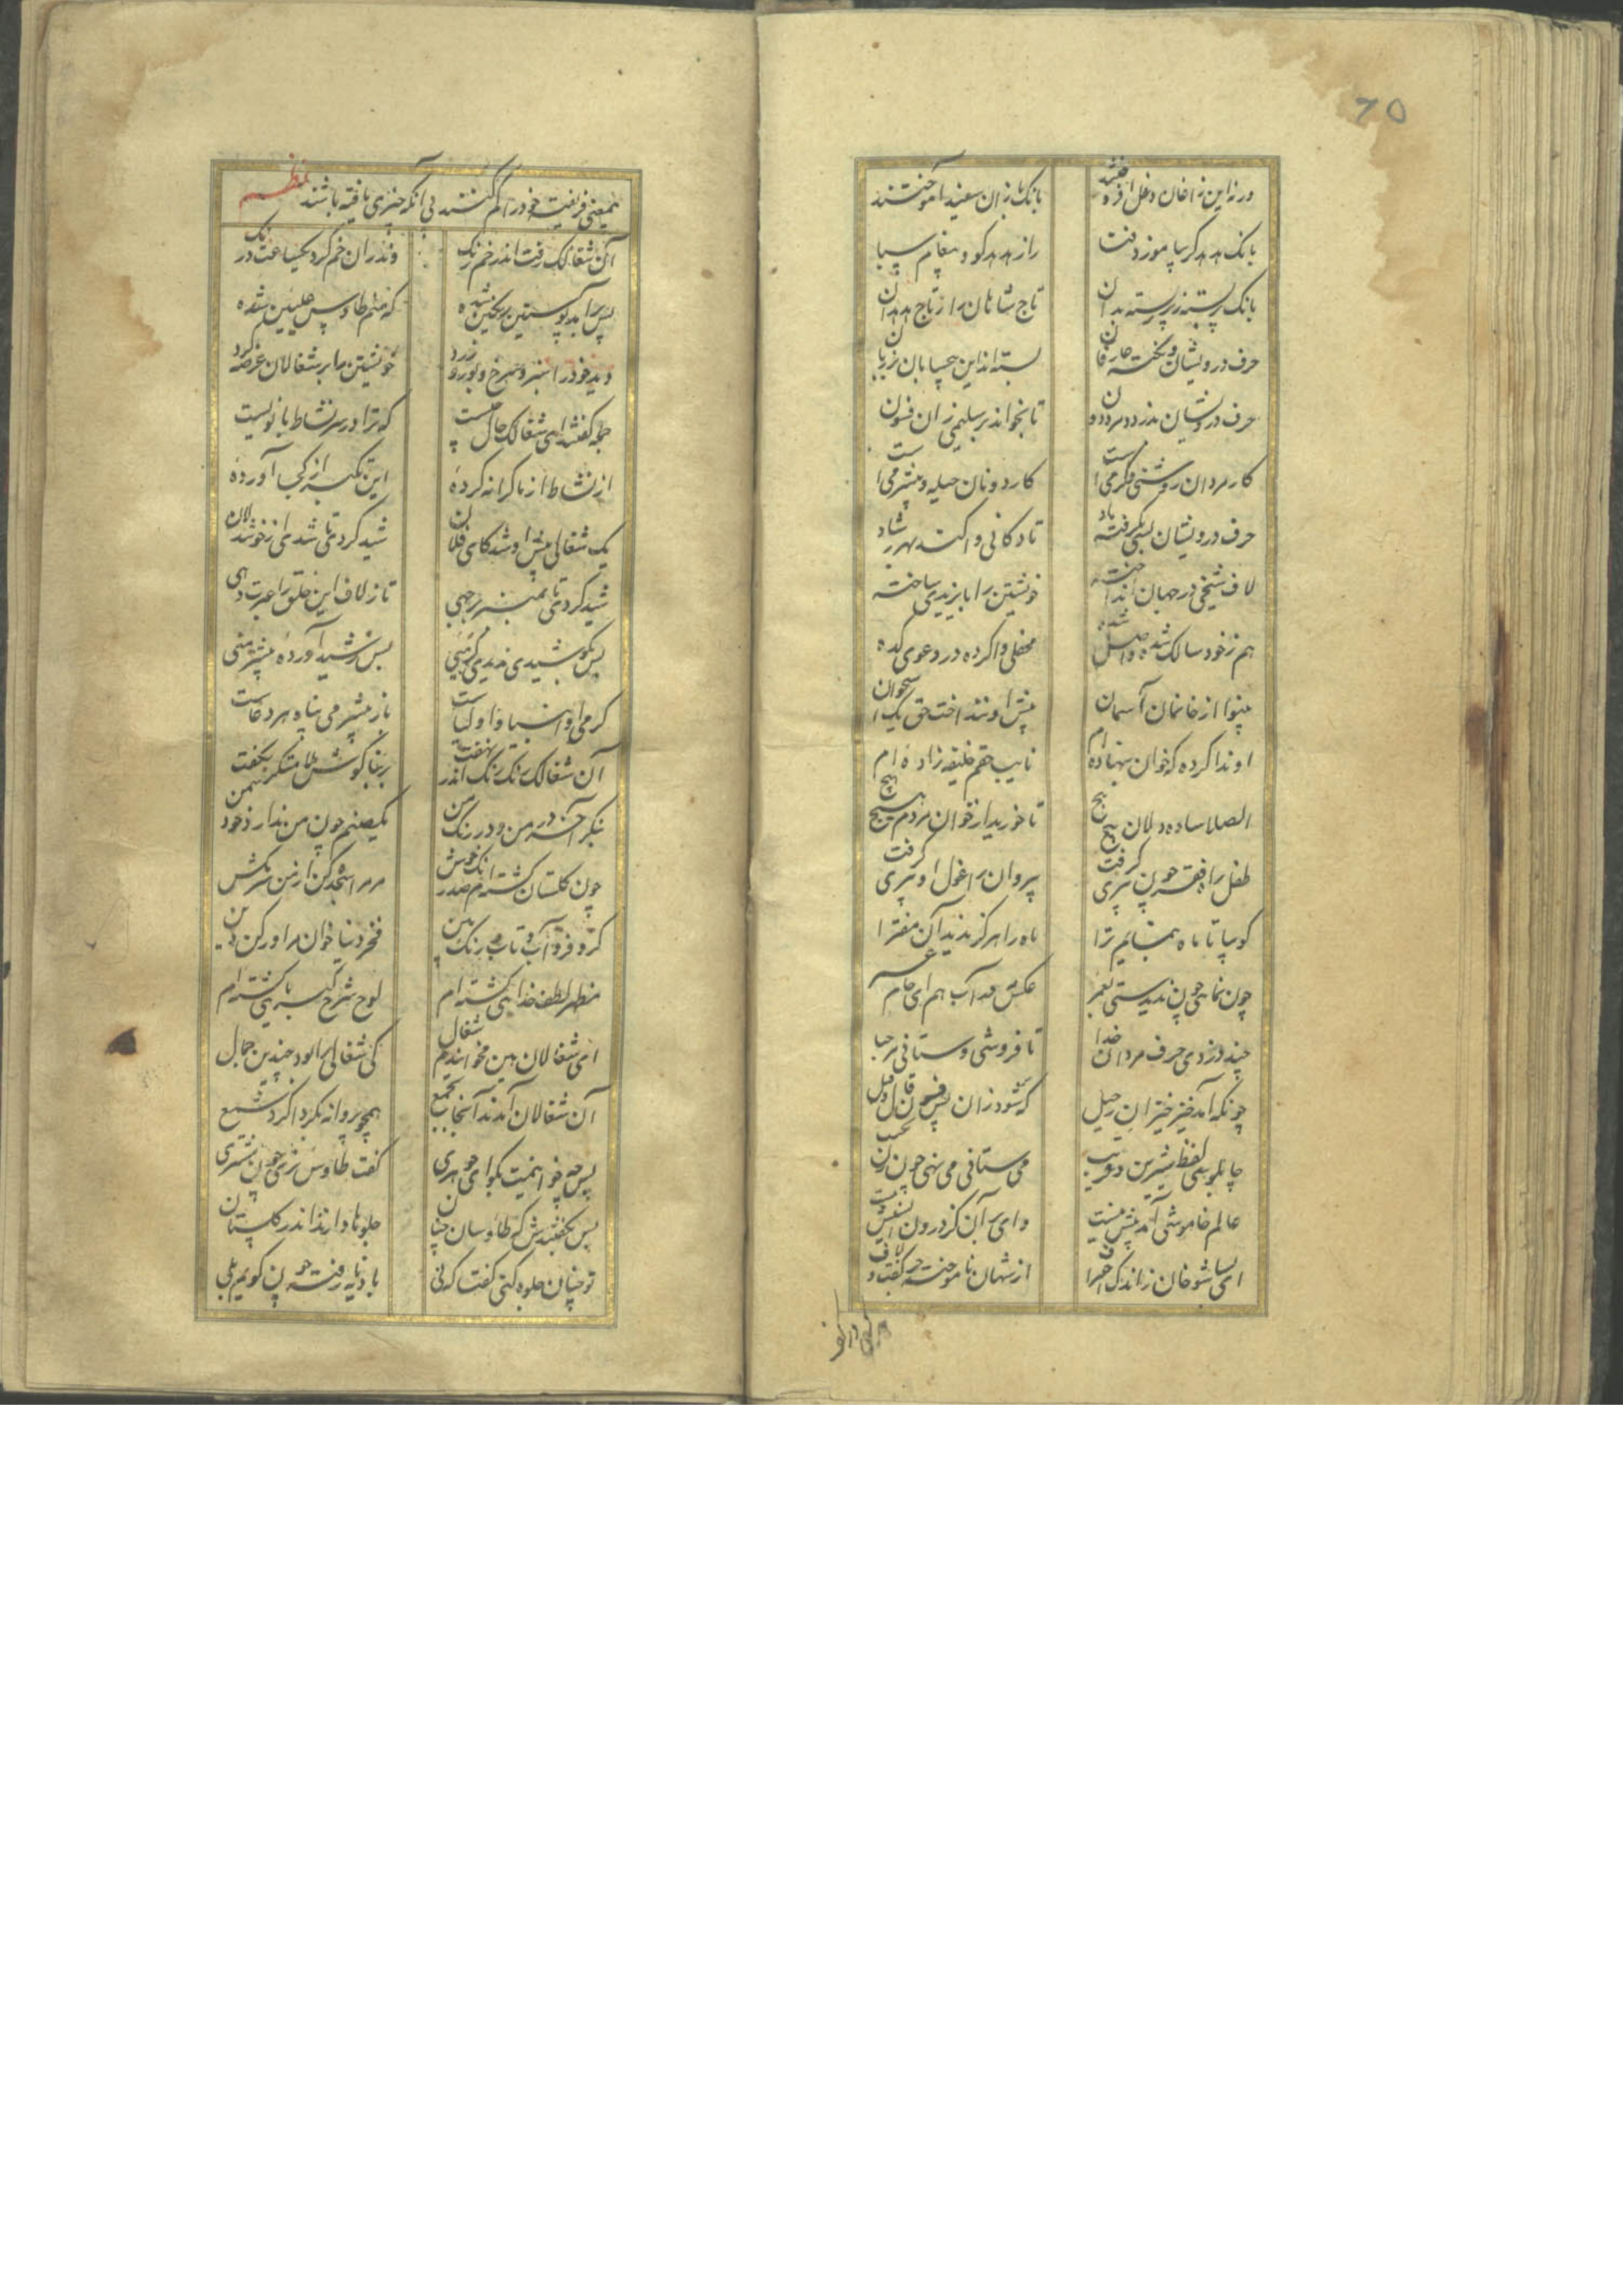 ۶۵
ورنه این زاغان دغل افروختند بانک بازان سفید آموختند
بانک هدهد گر بیاموزد فتا راز هدهد کو و پیغام سبا
بانک پر بسته ز پر بسته بدان تاج شاهان را ز تاج هدهدان
حرف درویشان و نکته عارفان بسته‌اند این بی‌حیایان بر زبان
حرف درویشان بدزدد مرد دون تا بخواند بر سلیمی زان فسون
کار مردان روشنی و گرمی است کار دونان حیله و بیشرمی است
حرف درویشان بسی بگرفته یاد تا دکانی واکند بهر رشاد
لاف شیخی در جهان انداخته خویشتن را بایزیدی ساخته
هم ز خود سالک شده واصل شده محفلی واکرده در دعوی کده
بینوا از خانمان آسمان پیش او ننداخت حق یک استخوان
او ندا کرده که خوان بنهاده ام نایب حقم خلیفه زاده ام
الصلا ساده دلان پیچ پیچ تا خورید از خوان مردم سیر هیچ
طفل راه فقر چون پیری گرفت پیروان را غول او پیری گرفت
کو بیا تا ماه بنمایم ترا ماه را هرگز ندید آن مفترا
چون نمایی چون ندیدستی بعمر عکس مه در آب هم ای خام
چند دزدی حرف مردان خدا تا فروشی و ستانی مرحبا
چونکه آمد خیز خیز آن رحیل کم شود زان پس فسون قال و قیل
چاپلوسی لفظ شیرین و فریب می ستانی می نهی چون زر بجیب
عالم خاموشی آمد پیش بیست وای آن کز درون انسیش نیست
ای بسا شوخان ز اندک احتراف از شهان ناموخته جز گفت و لاف
همعنی فریفته خود را کم کنند بی آنکه چیزی یافته باشند نظم
آن شغالک رفت اندر خم رنک وندران خم کرد یکساعت درنک
پس برآمد پوستین رنگین شده که منم طاوس علیین شده
دید خود را سبز و سرخ و بور و زرد خویشتن را بر شغالان عرضه کرد
جمله گفتند ای شغالک حال چیست که ترا در سر نشاط با نویست
از نشاط از ما کرانه کرده این تکبر از کجا آورده
یک شغالی پیش او شد کای فلان شید کردی تا شدی از خوشدلان
شید کردی تا بمنبر برجهی تا ز لاف این خلق را عبرت دهی
پس بکوشیدی ندیدی گرمئی پس ز شید آورده بیشرمئی
گرمی آن اولیا و انبیاست باز بیشرمی پناه هر دغاست
آن شغالک رنک رنک اندر نهفت بر بناگوش ملامتگر بگفت
بنگر آخر در من و در رنک من یک صنم چون من ندارد خود شمن
چون گلستان گشته ام صد رنک خوش مر مرا سجده کن از من سر مکش
کر و فر و آب و تاب و رنک بین فخر دنیا خوان مرا و رکن دین
مظهر لطف خدایی گشته ام لوح شرح کبریایی گشته ام
ای شغالان هین مخوانیدم شغال کی شغالی را بود چندین جمال
آن شغالان آمدند آنجا بجمع همچو پروانه بگرداگرد شمع
پس چه خوانیمت بگو ای جوهری گفت طاوس نری چون مشتری
پس بگفتندش که طاوسان چنان جلوها دارند اندر گلستان
تو چنان جلوه کنی گفتا که نی بادیه نارفته چون گویم بلی